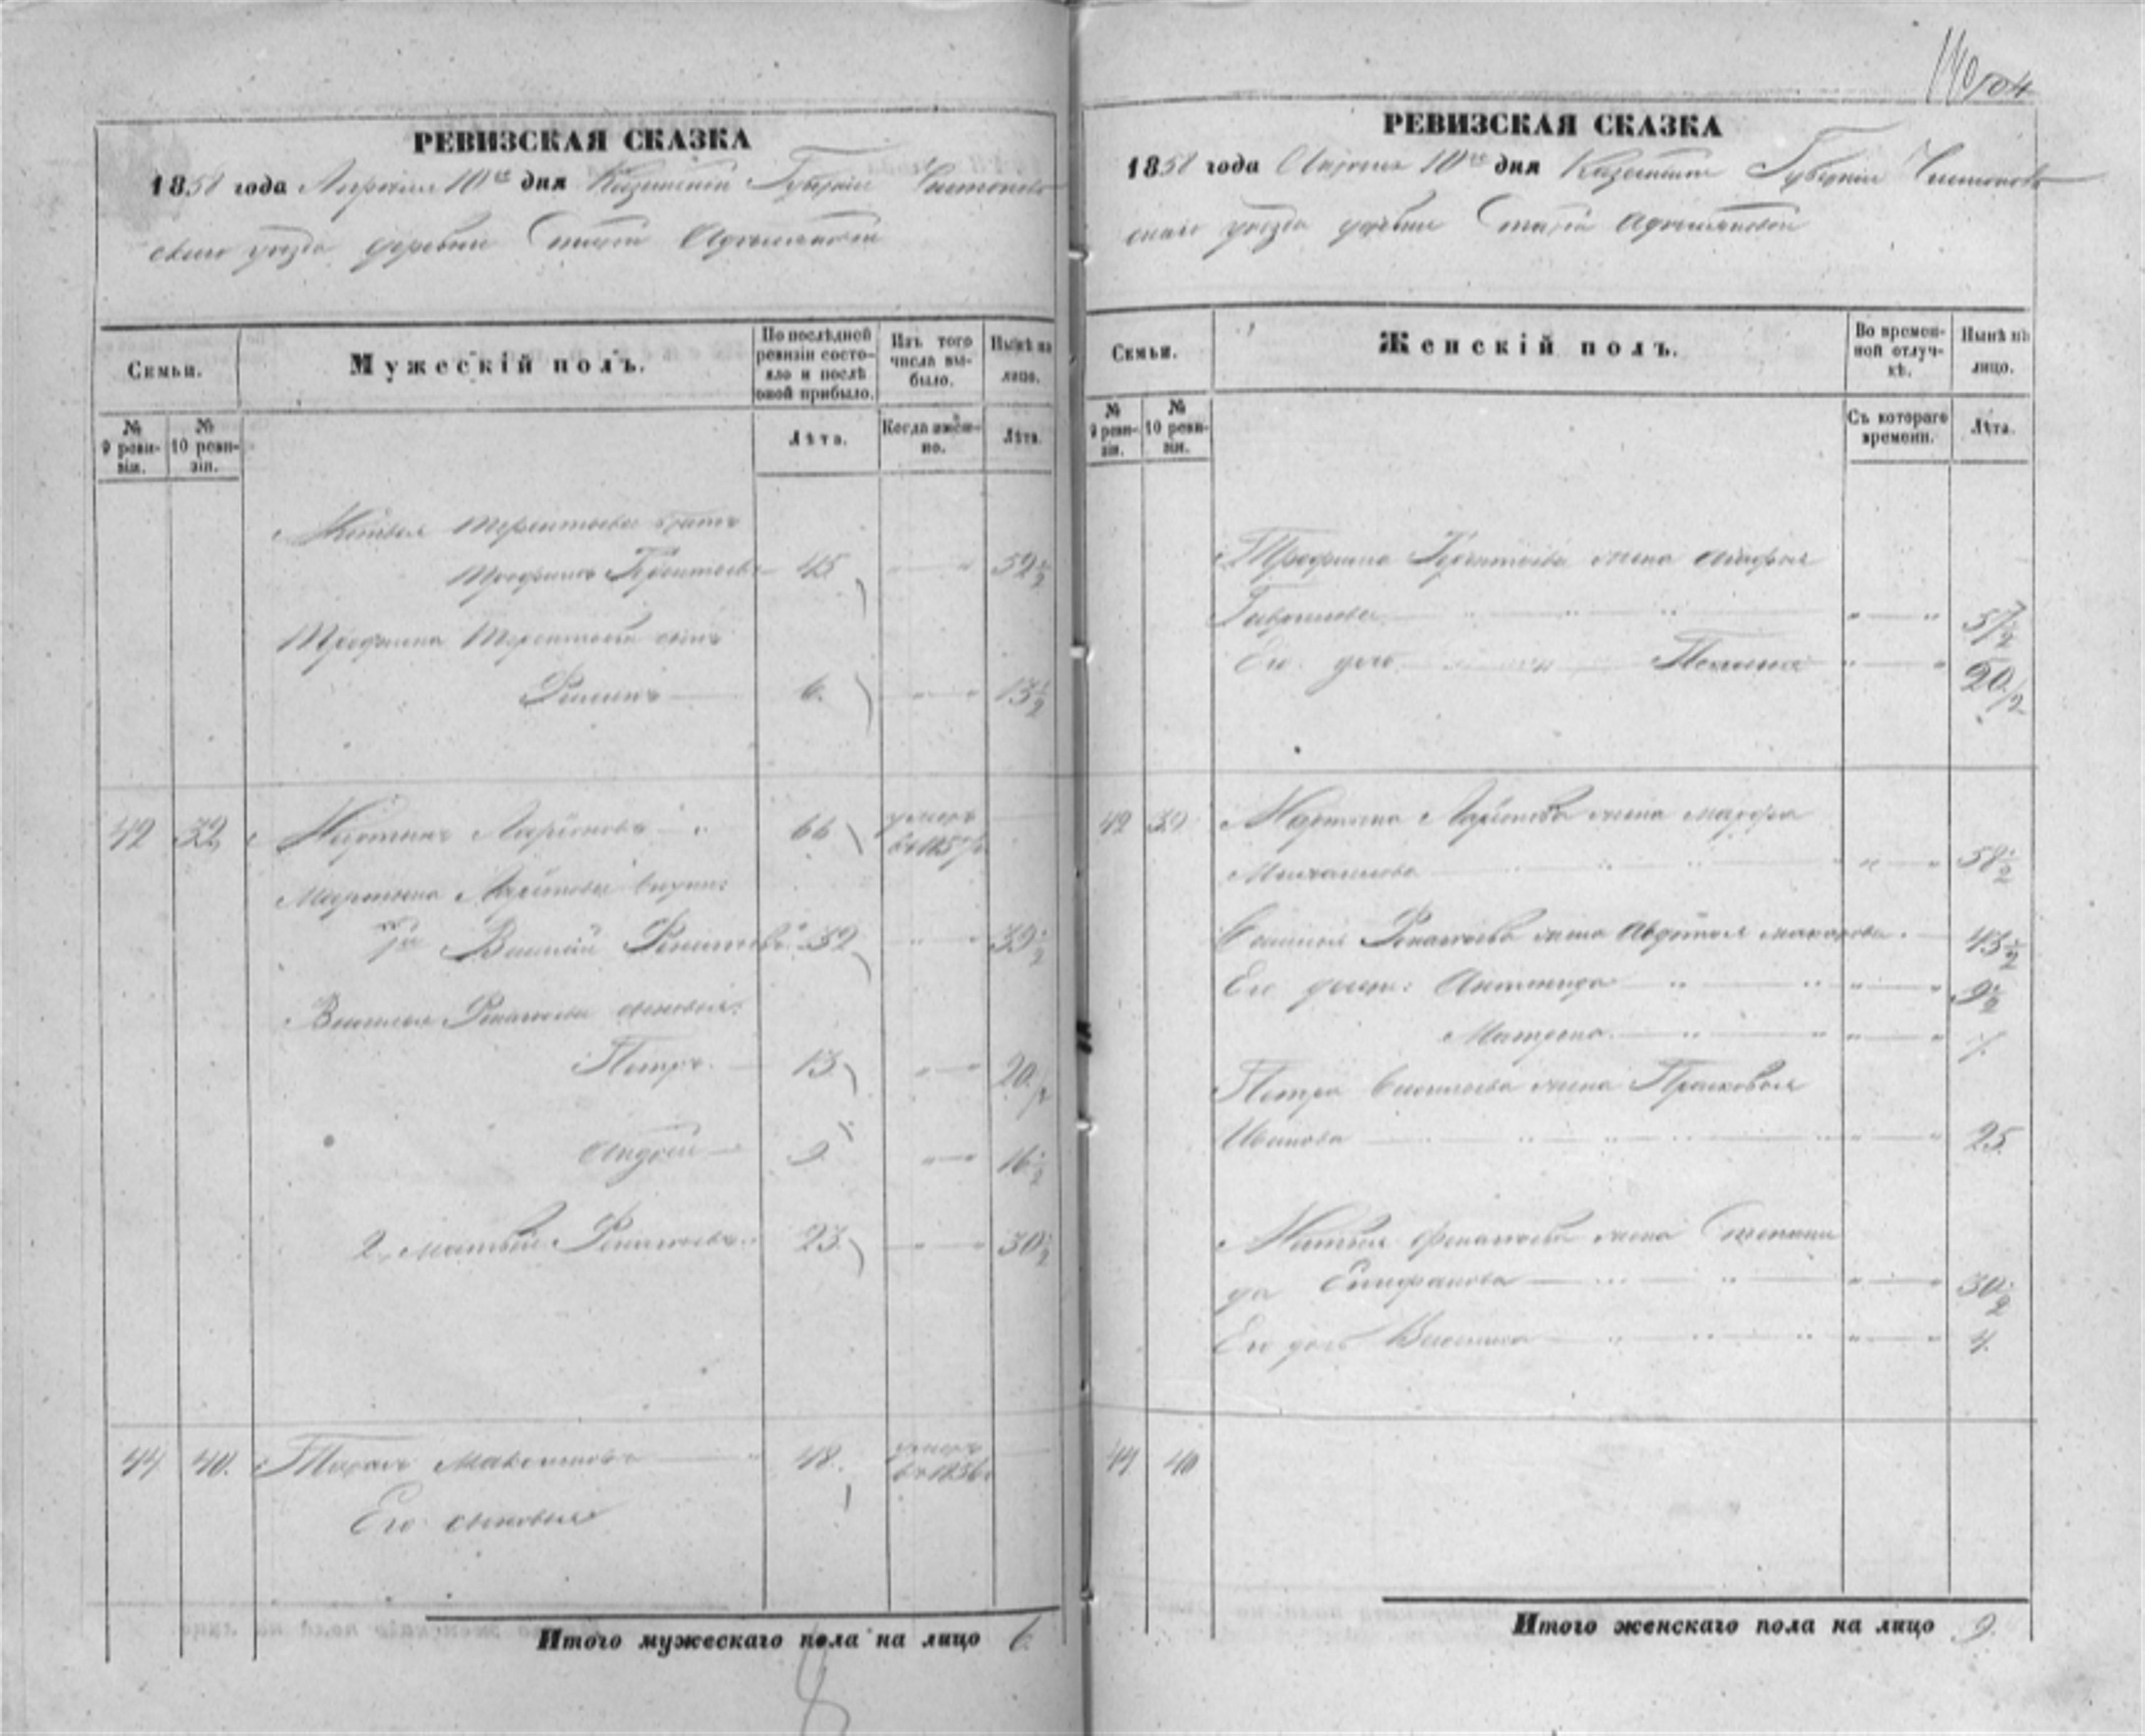 140 104
РЕВИЗСКАЯ СКАЗКА
1858 года Апреля 10го дня Казанской Губернии Чистополь
скаго уезда деревни Старой Адамсъ
Семьи.
Мужескій полъ.
По послѣдней ревизіи состояло и послѣ оной прибыло.
Изъ того числа выбыло.
Нынѣ на лицо.
№ 9 ревизіи.
№ 10 ревизіи.
Лѣта.
Когда именно.
Лѣта.
Матвея Терентьева братъ
Трофимъ Терентьевъ 45 52½
Трофима Терентьева сынъ
6. 13½
42 32 Мартынъ Ларіоновъ 66 умеръ въ 1857
Мартына Ларіонова внуки:
1й Василій 32 39½
Василья сыновья:
Петръ 13 20½
Андрей 9 16½
2, Матвей 23 30½
44 40. Тарасъ Максимовъ 48. умеръ въ 1856
Его сыновья
Итого мужескаго пола на лицо 6
РЕВИЗСКАЯ СКАЗКА
1858 года Апреля 10го дня Казанской Губерніи Чистополь
скаго уезда деревни Старой
Семьи.
Женскій полъ.
Во временной отлучкѣ.
Нынѣ на лицо.
№ 9 ревизіи.
№ 10 ревизіи.
Съ котораго времени.
Лѣта.
Трофима Терентьева жена Агафья
Гаврилова 57½
Его дочь Пелагея 20½
42 32 Мартына Ларіонова жена Марфа
Михайлова 58½
Василья жена Авдотья Макарова 43½
Его дочери: Антонида 9½
Матрена 7.
Петра Васильева жена Прасковья
Иванова 25
Матвея жена Степани
да Епифанова 30½
Его дочь Василиса 4.
44 40
Итого женскаго пола на лицо 9.